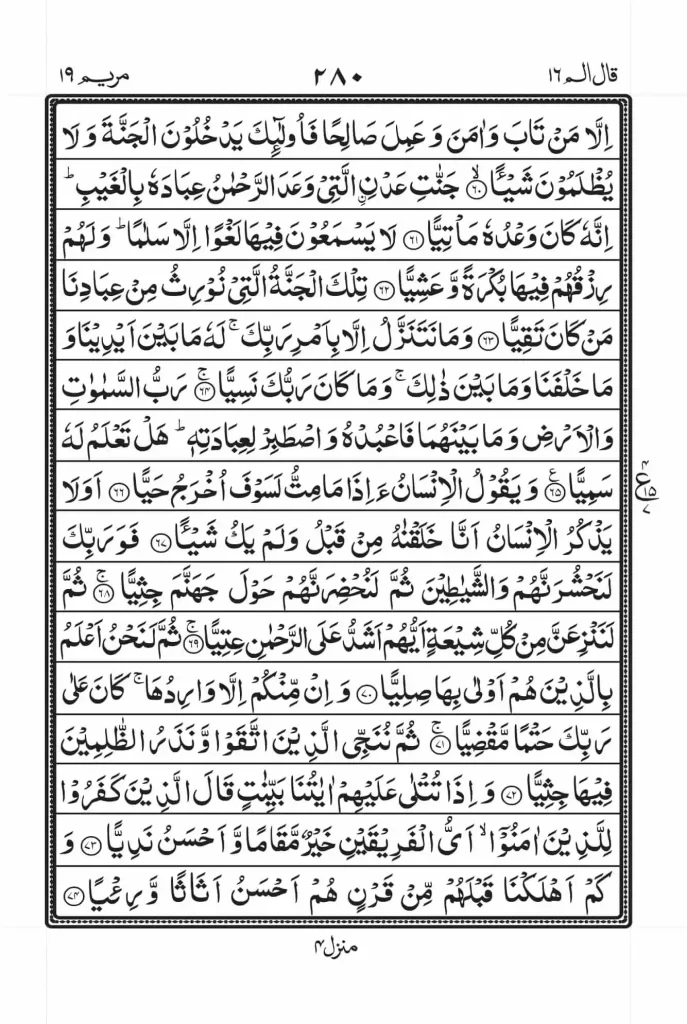 قال الم ١٦ ٢٨٠ مريم ١٩
اِلَّا مَنْ تَابَ وَاٰمَنَ وَعَمِلَ صَالِحًا فَاُولٰٓئِكَ يَدْخُلُوْنَ الْجَنَّةَ وَلَا
يُظْلَمُوْنَ شَيْـًٔا ۙ﴿٦٠﴾ جَنّٰتِ عَدْنِ ۨالَّتِيْ وَعَدَ الرَّحْمٰنُ عِبَادَهٗ بِالْغَيْبِ ؕ
اِنَّهٗ كَانَ وَعْدُهٗ مَاْتِيًّا ﴿٦١﴾ لَا يَسْمَعُوْنَ فِيْهَا لَغْوًا اِلَّا سَلٰمًا ؕ وَلَهُمْ
رِزْقُهُمْ فِيْهَا بُكْرَةً وَّعَشِيًّا ﴿٦٢﴾ تِلْكَ الْجَنَّةُ الَّتِيْ نُوْرِثُ مِنْ عِبَادِنَا
مَنْ كَانَ تَقِيًّا ﴿٦٣﴾ وَمَا نَتَنَزَّلُ اِلَّا بِاَمْرِ رَبِّكَ ۚ لَهٗ مَا بَيْنَ اَيْدِيْنَا وَ
مَا خَلْفَنَا وَمَا بَيْنَ ذٰلِكَ ۚ وَمَا كَانَ رَبُّكَ نَسِيًّا ۚ﴿٦٤﴾ رَبُّ السَّمٰوٰتِ
وَالْاَرْضِ وَمَا بَيْنَهُمَا فَاعْبُدْهُ وَاصْطَبِرْ لِعِبَادَتِهٖ ؕ هَلْ تَعْلَمُ لَهٗ
سَمِيًّا ﴿٦٥﴾ ع وَيَقُوْلُ الْاِنْسَانُ ءَاِذَا مَا مِتُّ لَسَوْفَ اُخْرَجُ حَيًّا ﴿٦٦﴾ اَوَلَا
يَذْكُرُ الْاِنْسَانُ اَنَّا خَلَقْنٰهُ مِنْ قَبْلُ وَلَمْ يَكُ شَيْـًٔا ﴿٦٧﴾ فَوَرَبِّكَ
لَنَحْشُرَنَّهُمْ وَالشَّيٰطِيْنَ ثُمَّ لَنُحْضِرَنَّهُمْ حَوْلَ جَهَنَّمَ جِثِيًّا ۚ﴿٦٨﴾ ثُمَّ
لَنَنْزِعَنَّ مِنْ كُلِّ شِيْعَةٍ اَيُّهُمْ اَشَدُّ عَلَى الرَّحْمٰنِ عِتِيًّا ۚ﴿٦٩﴾ ثُمَّ لَنَحْنُ اَعْلَمُ
بِالَّذِيْنَ هُمْ اَوْلٰى بِهَا صِلِيًّا ﴿٧٠﴾ وَاِنْ مِّنْكُمْ اِلَّا وَارِدُهَا ۚ كَانَ عَلٰى
رَبِّكَ حَتْمًا مَّقْضِيًّا ۚ﴿٧١﴾ ثُمَّ نُنَجِّي الَّذِيْنَ اتَّقَوْا وَّنَذَرُ الظّٰلِمِيْنَ
فِيْهَا جِثِيًّا ﴿٧٢﴾ وَاِذَا تُتْلٰى عَلَيْهِمْ اٰيٰتُنَا بَيِّنٰتٍ قَالَ الَّذِيْنَ كَفَرُوْا
لِلَّذِيْنَ اٰمَنُوْٓا ۙ اَيُّ الْفَرِيْقَيْنِ خَيْرٌ مَّقَامًا وَّاَحْسَنُ نَدِيًّا ﴿٧٣﴾ وَ
كَمْ اَهْلَكْنَا قَبْلَهُمْ مِّنْ قَرْنٍ هُمْ اَحْسَنُ اَثَاثًا وَّرِءْيًا ﴿٧٤﴾
منزل ٤